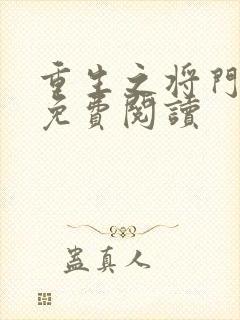 重生之将門
免費閱讀
蛊真人